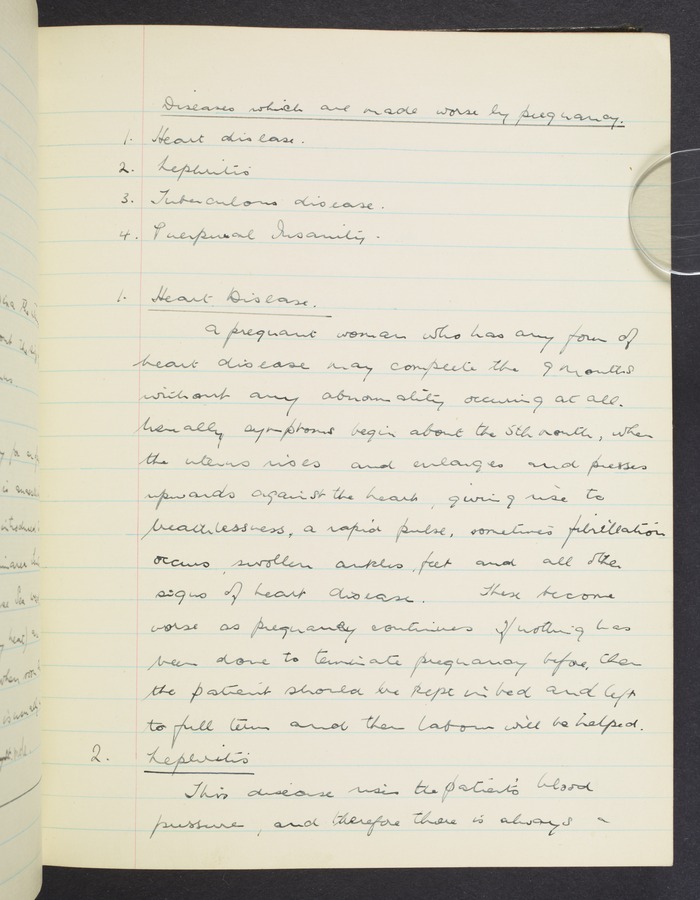 Diseases which are made worse by pregnancy.
1. Heart disease.
2. Nephritis
3. Tuberculous disease.
4. Puerperal Insanity.
1. Heart Disease.
A pregnant woman who has any form of
heart disease may complete the 9 months
without any abnormality occuring at all.
Usually symptoms begin about the 5th month, when
the uterus rises and enlarges and presses
upwards against the heart, giving rise to
breathlessness, a rapid pulse, sometimes fibrillation
occurs, swollen ankles, feet and all other
signs of heart disease. These become
worse as pregnancy continues if nothing has
been done to terminate pregnancy before, then
the patient should be kept in bed and left
to full term and then labour will be helped.
2. Nephritis
This disease rises the patient's blood
pressure, and therefore there is always a